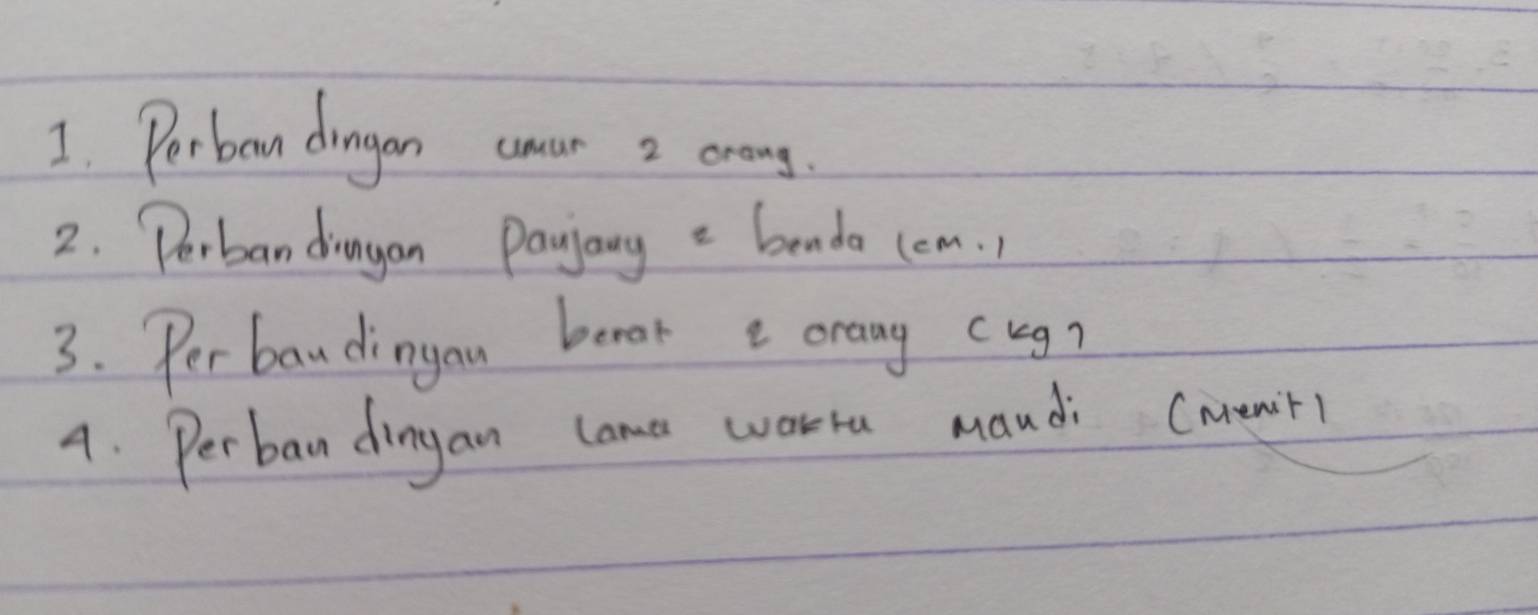 1. Perbandingan umur 2 orang.
2. Perbandingan Panjang 2 benda (cm.)
3. Perbandingan berat 2 orang (kg)
4. Perbandingan lama waktu mandi (Menit)